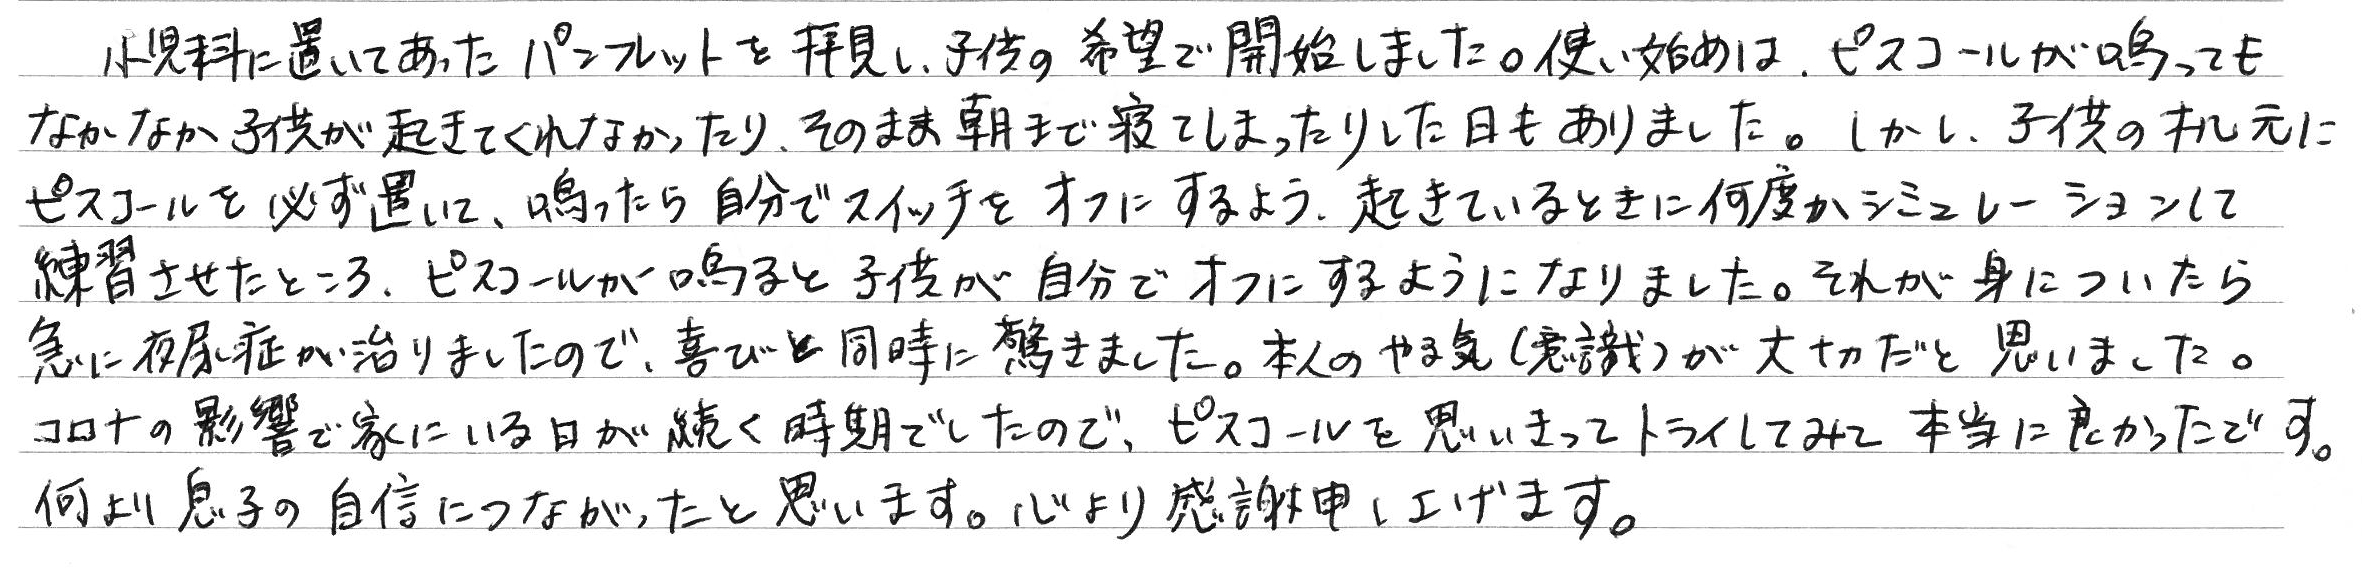 小児科に置いてあったパンフレットを拝見し、子供の希望で開始しました。使い始めは、ピスコールが鳴っても
なかなか子供が起きてくれなかったり、そのまま朝まで寝てしまったりした日もありました。しかし、子供の枕元に
ピスコールを必ず置いて、鳴ったら自分でスイッチをオフにするよう、起きているときに何度かシミュレーションして
練習させたところ、ピスコールが鳴ると子供が自分でオフにするようになりました。それが身についたら
急に夜尿症が治りましたので、喜びと同時に驚きました。本人のやる気(意識)が大切だと思いました。
コロナの影響で家にいる日が続く時期でしたので、ピスコールを思いきってトライしてみて本当に良かったです。
何より息子の自信につながったと思います。心より感謝申し上げます。